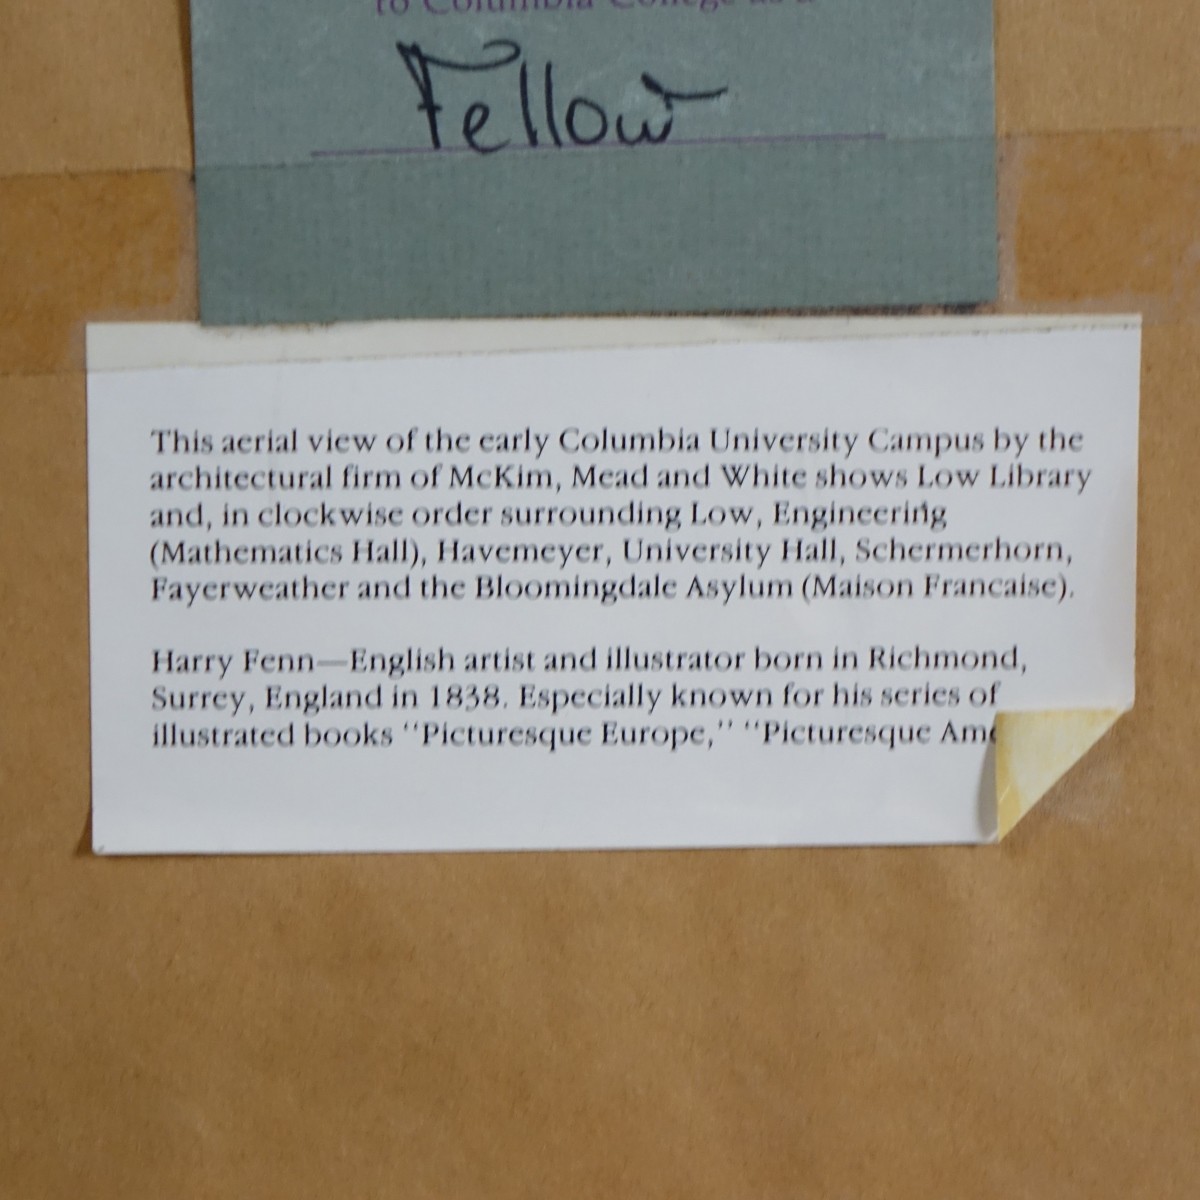 to Columbia College as a
Fellow
This aerial view of the early Columbia University Campus by the
architectural firm of McKim, Mead and White shows Low Library
and, in clockwise order surrounding Low, Engineering
(Mathematics Hall), Havemeyer, University Hall, Schermerhorn,
Fayerweather and the Bloomingdale Asylum (Maison Francaise).
Harry Fenn—English artist and illustrator born in Richmond,
Surrey, England in 1838. Especially known for his series of
illustrated books “Picturesque Europe,” “Picturesque